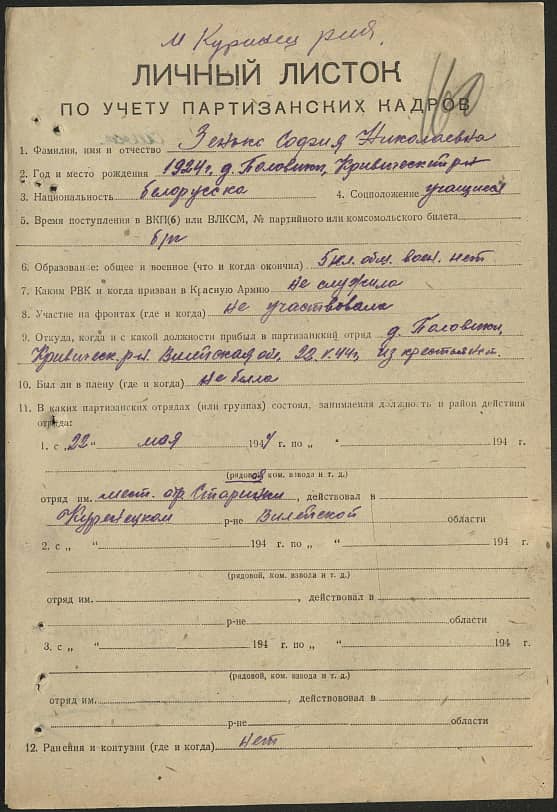 м Куренец рна.
ЛИЧНЫЙ ЛИСТОК
160
ПО УЧЕТУ ПАРТИЗАНСКИХ КАДРОВ
1. Фамилия, имя и отчество Зенько София Николаевна
2. Год и место рождения 1924 г. д. Половики, Кривическ р-н
3. Национальность белорусска 4. Соцположение учащийся
5. Время поступления в ВКП(б) или ВЛКСМ, № партийного или комсомольского билета
б/п
6. Образование: общее и военное (что и когда окончил) 5 кл. общ. воен. нет
7. Каким РВК и когда призван в Красную Армию не служила
8. Участие на фронтах (где и когда) не участвовала
9. Откуда, когда и с какой должности прибыл в партизанкий отряд д. Половики,
Кривическ. р-н. Вилейская об., 22.V.44г, из крестьянст.
10. Был ли в плену (где и когда) не была
11. В каких партизанских отрядах (или группах) состоял, занимаемая должность и район действия
отряда:
1. с „22" мая 1944 г. по „ " 194 г.
(рядовой, ком. взвода и т. д.)
отряд им. мест. отр. Старинки, действовал в
Куренецком р-не Вилейской области
2. с „ " 194 г. по „ " 194 г.
(рядовой, ком. взвода и т. д.)
отряд им. , действовал в
р-не области
3. с „ " 194 г. по „ " 194 г.
(рядовой, ком. взвода и т. д.)
отряд им. , действовал в
р-не области
12. Ранения и контузии (где и когда) нет